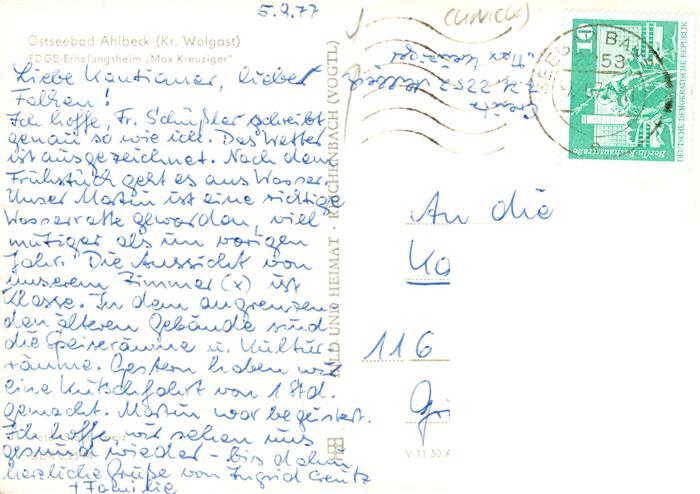 5.9.77
Ostseebad Ahlbeck (Kr. Wolgast)
FDGB-Erholungsheim „Max Kreuziger"
Liebe Kantianer, lieber
Falken!
Ich hoffe, Fr. Schüßler schreibt
genau so wie ich. Das Wetter
ist ausgezeichnet. Nach dem
Frühstück geht es ans Wasser.
Unser Martin ist eine richtige
Wasserratte geworden, viel
mutiger als im vorigen
Jahr. Die Aussicht von
unserem Zimmer (x) ist
Klasse. In dem angrenzen
den älteren Gebäude sind
die Speiseräume u. Kultur
räume. Gestern haben wir
eine Kutschfahrt von 1 Std.
gemacht. Martin war begeistert.
Ich hoffe, wir sehen uns
gesund wieder - bis dahin
herzliche Grüße von Ingrid Creutz
+ Familie
BILD UND HEIMAT · REICHENBACH (VOGTL)
V 11 50 A
z.Z. 2252
10
DEUTSCHE DEMOKRATISCHE REPUBLIK
Berlin-Rathausstraße
SEEBAD
2253
An die
Ka
116